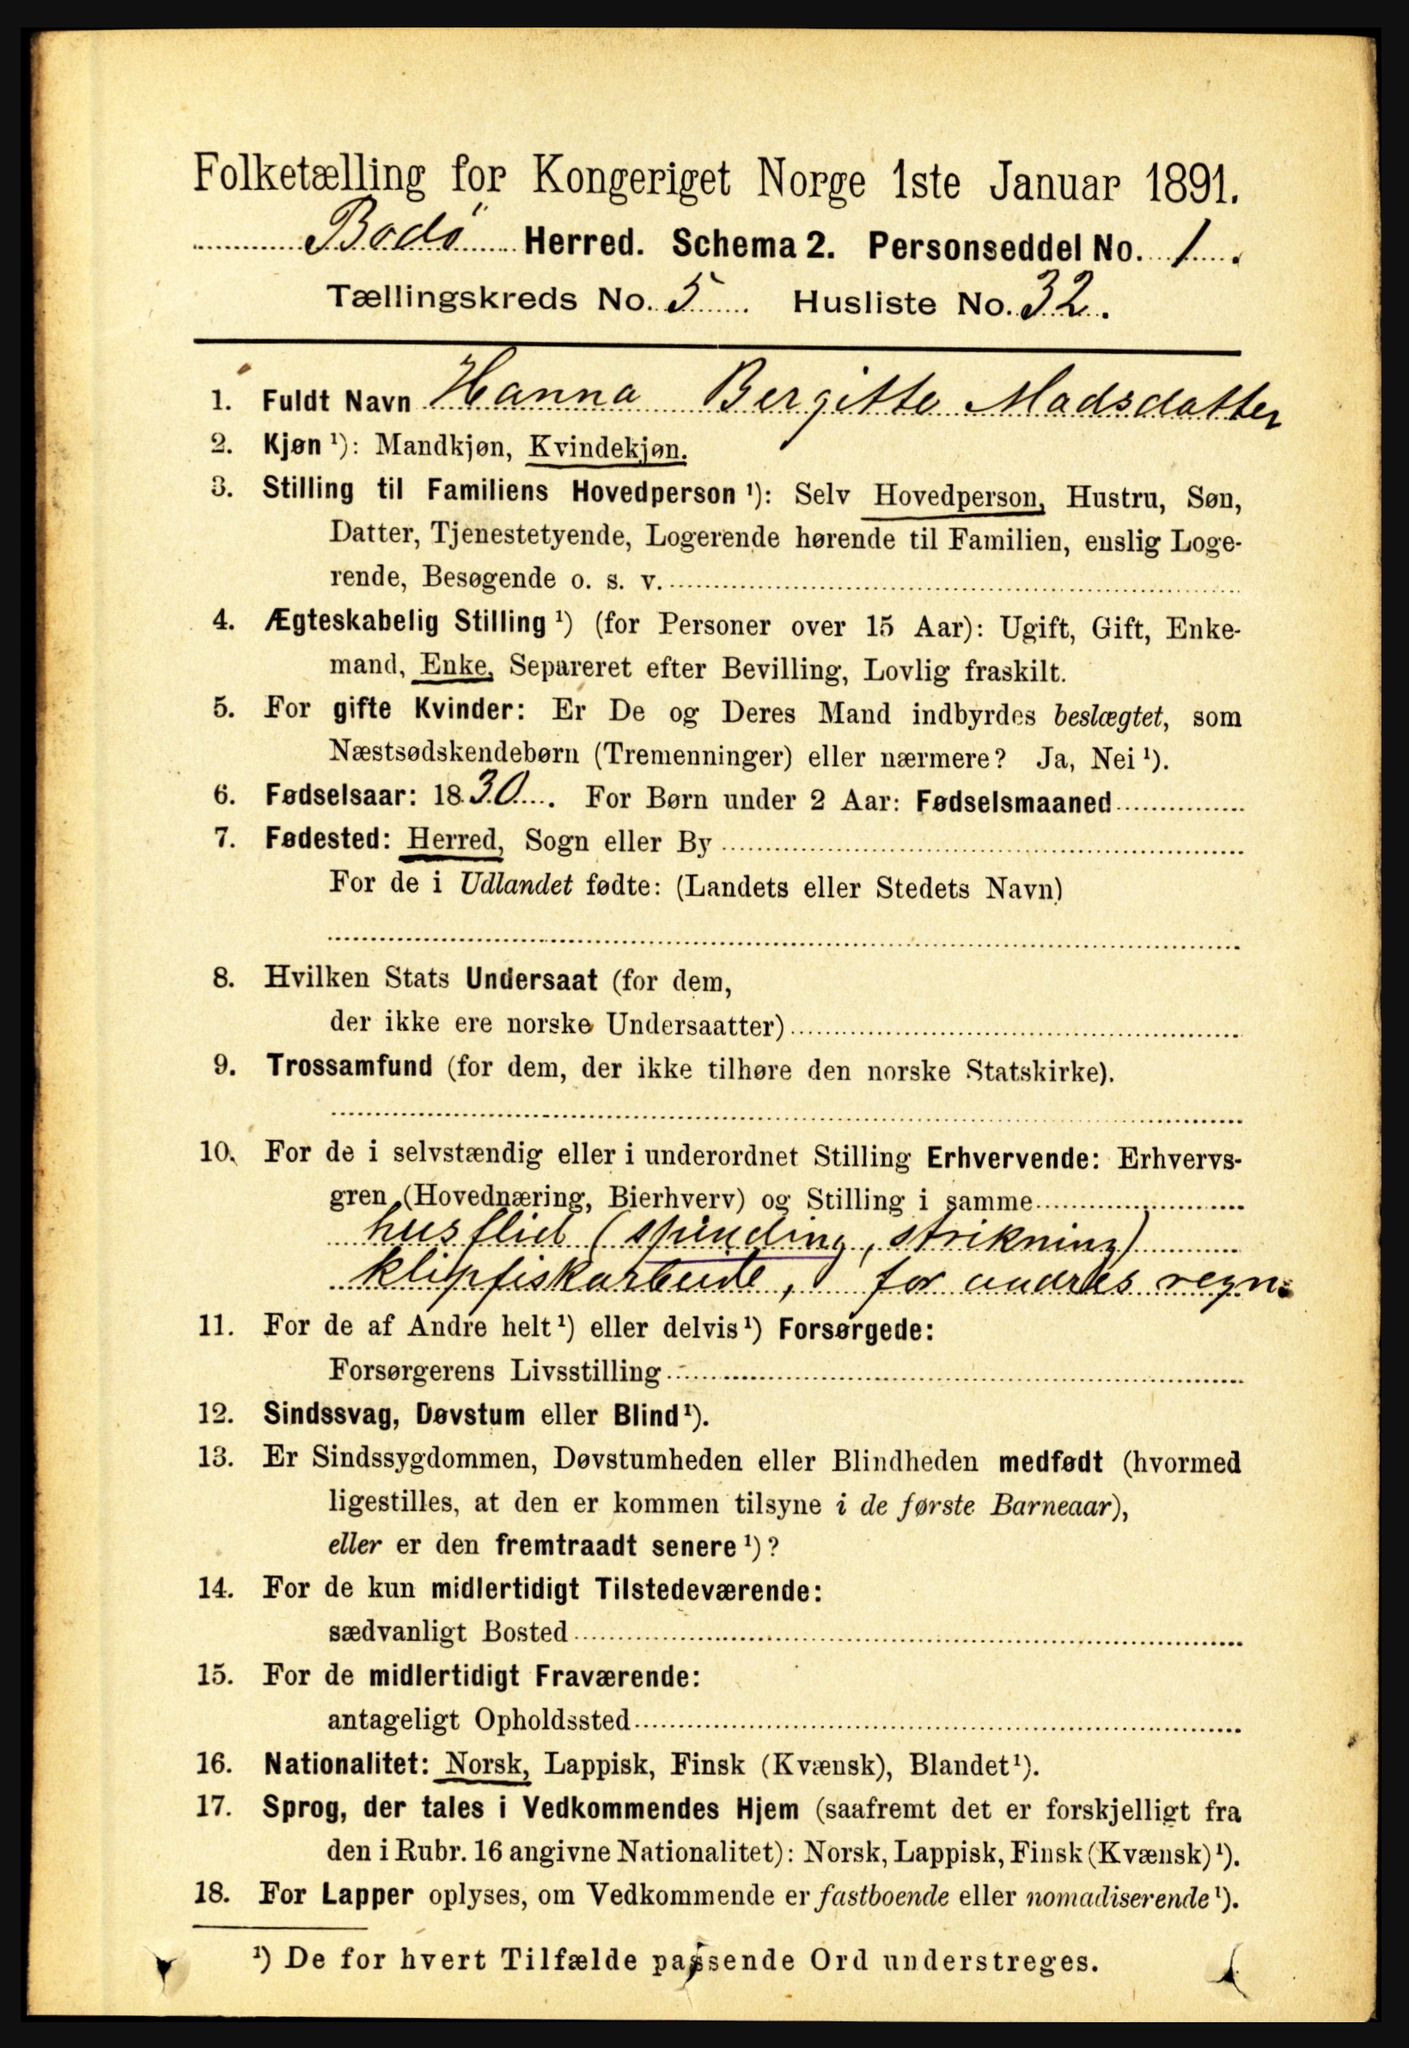 Folketælling for Kongeriget Norge 1ste Januar 1891.
Bodö Herred. Schema 2. Personseddel No. 1.
Tællingskreds No. 5 Husliste No. 32.
1. Fuldt Navn Hanna Bergitte Madsdatter
2. Kjøn ¹): Mandkjøn, Kvindekjøn.
3. Stilling til Familiens Hovedperson ¹): Selv Hovedperson, Hustru, Søn,
Datter, Tjenestetyende, Logerende hørende til Familien, enslig Loge-
rende, Besøgende o. s. v.
4. Ægteskabelig Stilling ¹) (for Personer over 15 Aar): Ugift, Gift, Enke-
mand, Enke, Separeret efter Bevilling, Lovlig fraskilt.
5. For gifte Kvinder: Er De og Deres Mand indbyrdes beslægtet, som
Næstsødskendebørn (Tremenninger) eller nærmere? Ja, Nei ¹).
6. Fødselsaar: 1830. For Børn under 2 Aar: Fødselsmaaned
7. Fødested: Herred, Sogn eller By
For de i Udlandet fødte: (Landets eller Stedets Navn)
8. Hvilken Stats Undersaat (for dem,
der ikke ere norske Undersaatter)
9. Trossamfund (for dem, der ikke tilhøre den norske Statskirke).
10. For de i selvstændig eller i underordnet Stilling Erhvervende: Erhvervs-
gren (Hovednæring, Bierhverv) og Stilling i samme
husflid (spinding, strikning)
klipfiskarbeide, for andres regn.
11. For de af Andre helt ¹) eller delvis ¹) Forsørgede:
Forsørgerens Livsstilling
12. Sindssvag, Døvstum eller Blind ¹).
13. Er Sindssygdommen, Døvstumheden eller Blindheden medfødt (hvormed
ligestilles, at den er kommen tilsyne i de første Barneaar),
eller er den fremtraadt senere ¹)?
14. For de kun midlertidigt Tilstedeværende:
sædvanligt Bosted
15. For de midlertidigt Fraværende:
antageligt Opholdssted
16. Nationalitet: Norsk, Lappisk, Finsk (Kvænsk), Blandet ¹).
17. Sprog, der tales i Vedkommendes Hjem (saafremt det er forskjelligt fra
den i Rubr. 16 angivne Nationalitet): Norsk, Lappisk, Finsk (Kvænsk) ¹).
18. For Lapper oplyses, om Vedkommende er fastboende eller nomadiserende ¹).
¹) De for hvert Tilfælde passende Ord understreges.